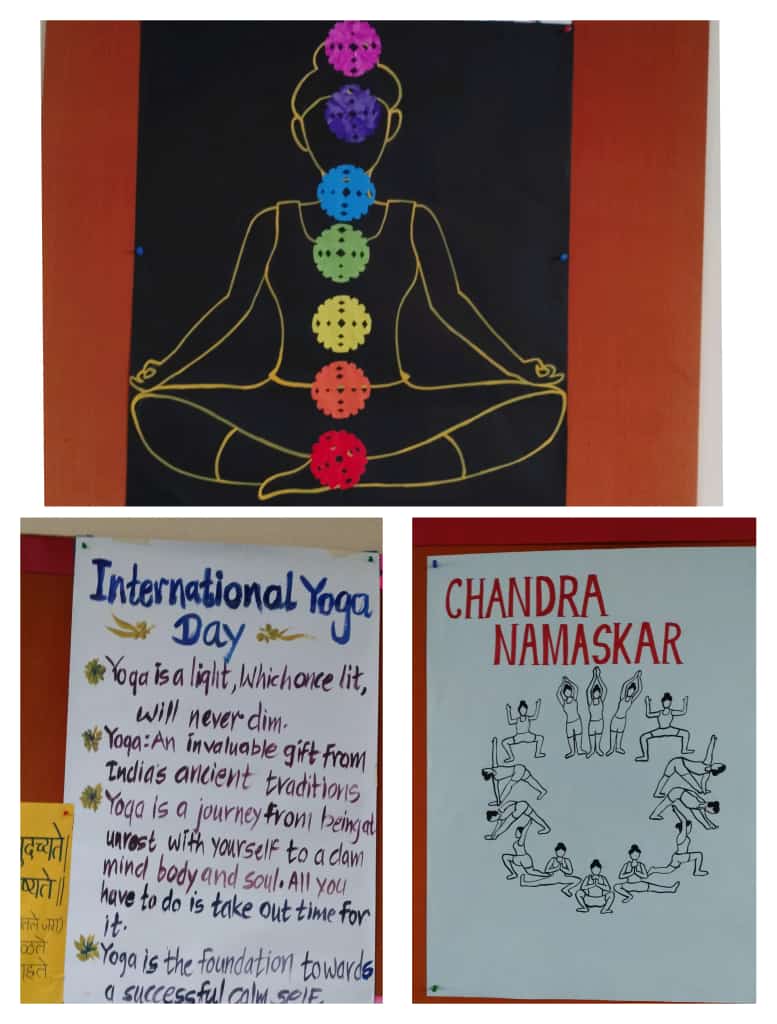 International Yoga
Day
Yoga is a light, Which once lit,
will never dim.
Yoga: An invaluable gift from
India's ancient traditions
Yoga is a journey from being at
unrest with yourself to a clam
mind body and soul. All you
have to do is take out time for
it.
Yoga is the foundation towards
a successful calm self.
ुदच्यते|
ष्यते॥
CHANDRA
NAMASKAR